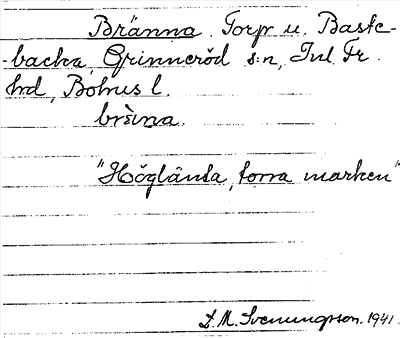 Bränna. Torp u. Baste-
-backa, Grinneröd s:n, Inl. Fr.
hd, Bohus l.
brɛ̀ina.
"Höglänta, torra marken"
D. M. Svenungsson. 1941.